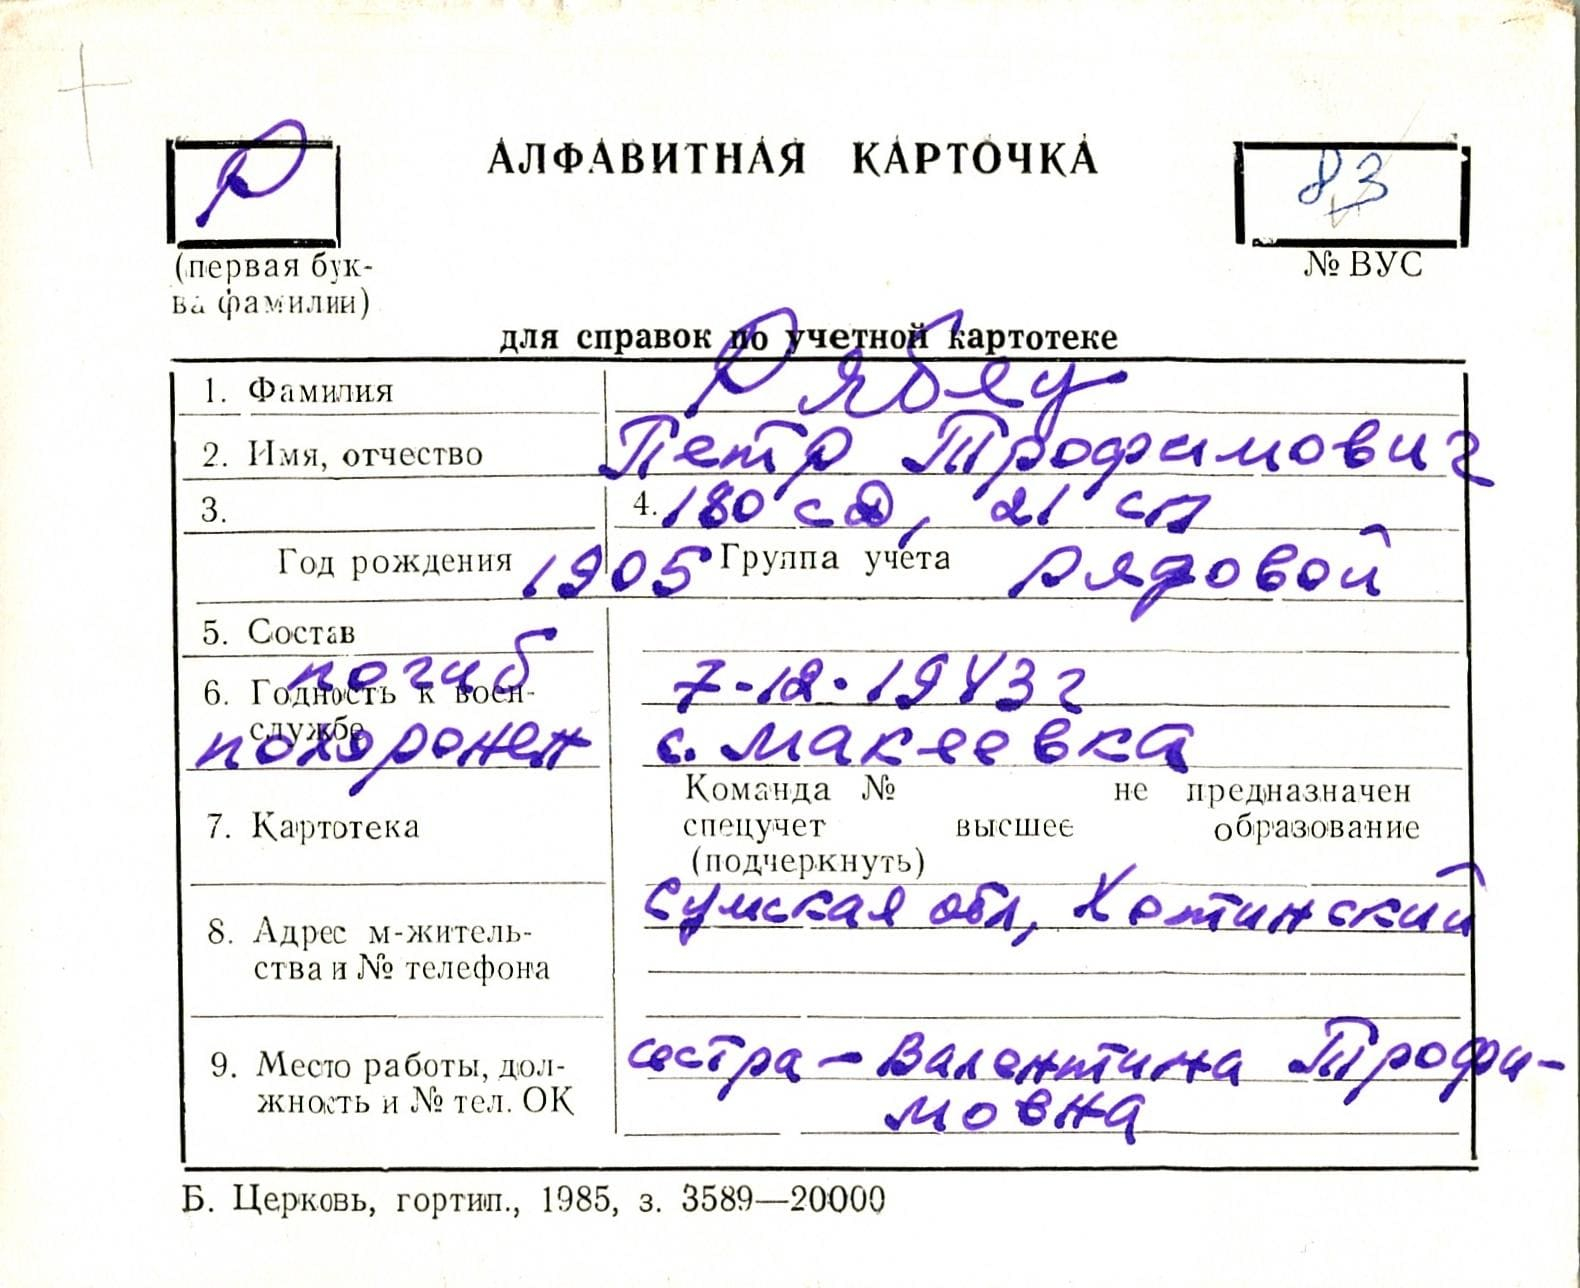 Р
АЛФАВИТНАЯ КАРТОЧКА
83
(первая бук-
ва фамилии)
№ ВУС
для справок по учетной картотеке
1. Фамилия Рябец
2. Имя, отчество Петр Трофимович
3. 4. 180 сд, 21 сп
Год рождения 1905 Группа учёта рядовой
5. Состав
погиб 7-12.1943 г
6. Годность к воен-
службе
похоронен с. Макеевка
7. Картотека
Команда № не предназначен
спецучет высшее образование
(подчеркнуть)
Сумская обл, Хотинский
8. Адрес м-житель-
ства и № телефона
9. Место работы, дол-
жность и № тел. ОК
сестра - Валентина Трофи-
мовна
Б. Церковь, гортип., 1985, з. 3589—20000